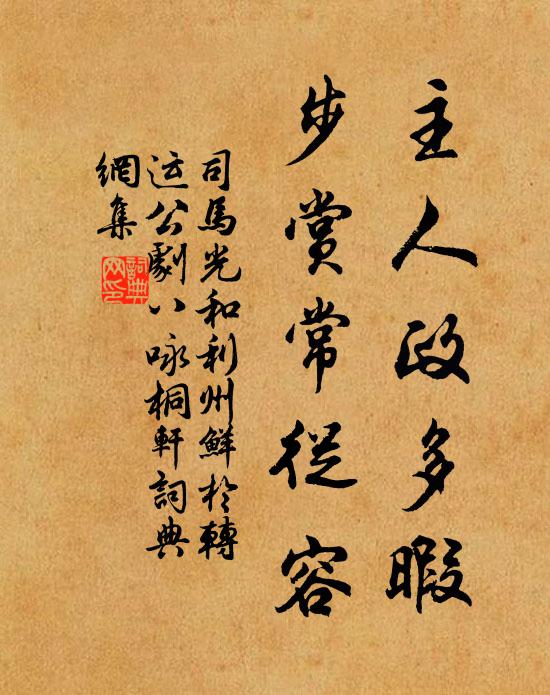 主人政多暇
步賞常從容
司馬光和利州鮮於轉
运公劇八咏桐軒詞典
網集
詞典
网印